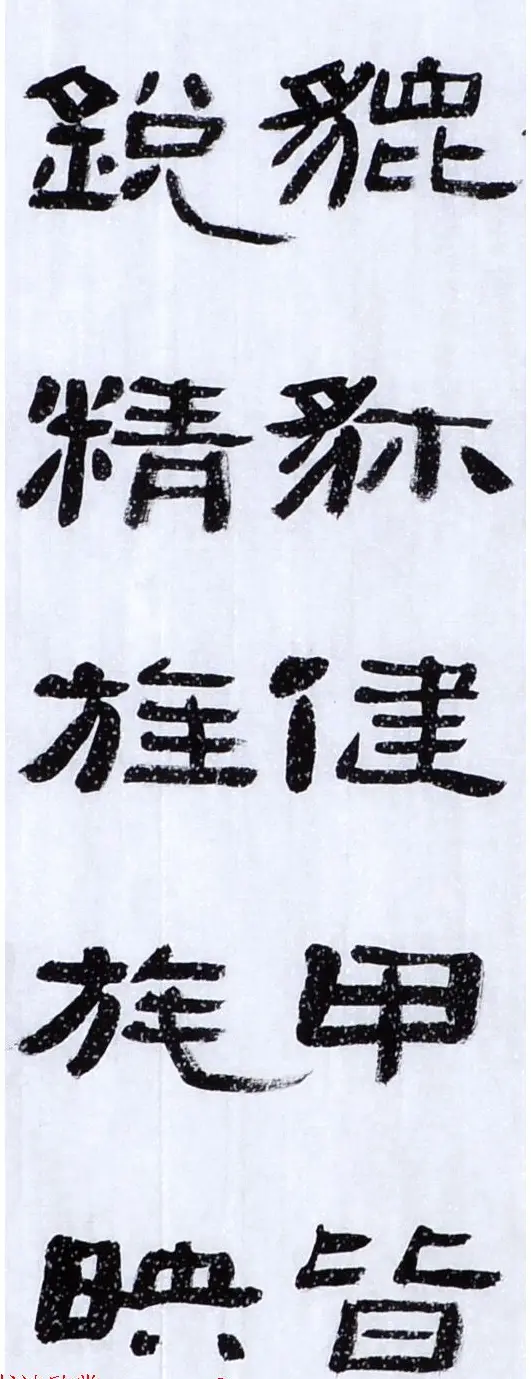 貔貅健甲皆
鋭精旌旄映